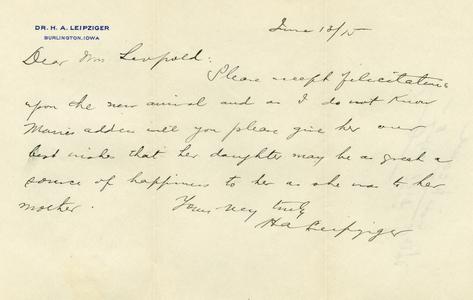 DR. H. A. LEIPZIGER
BURLINGTON, IOWA
June 18/15
Dear Mrs Leopold:
Please accept felicitations
upon the new arrival and as I do not know
Maries address will you please give her our
best wishes that her daughter may be as great a
source of happiness to her as she was to her
mother.
Yours very truly
H A Leipziger